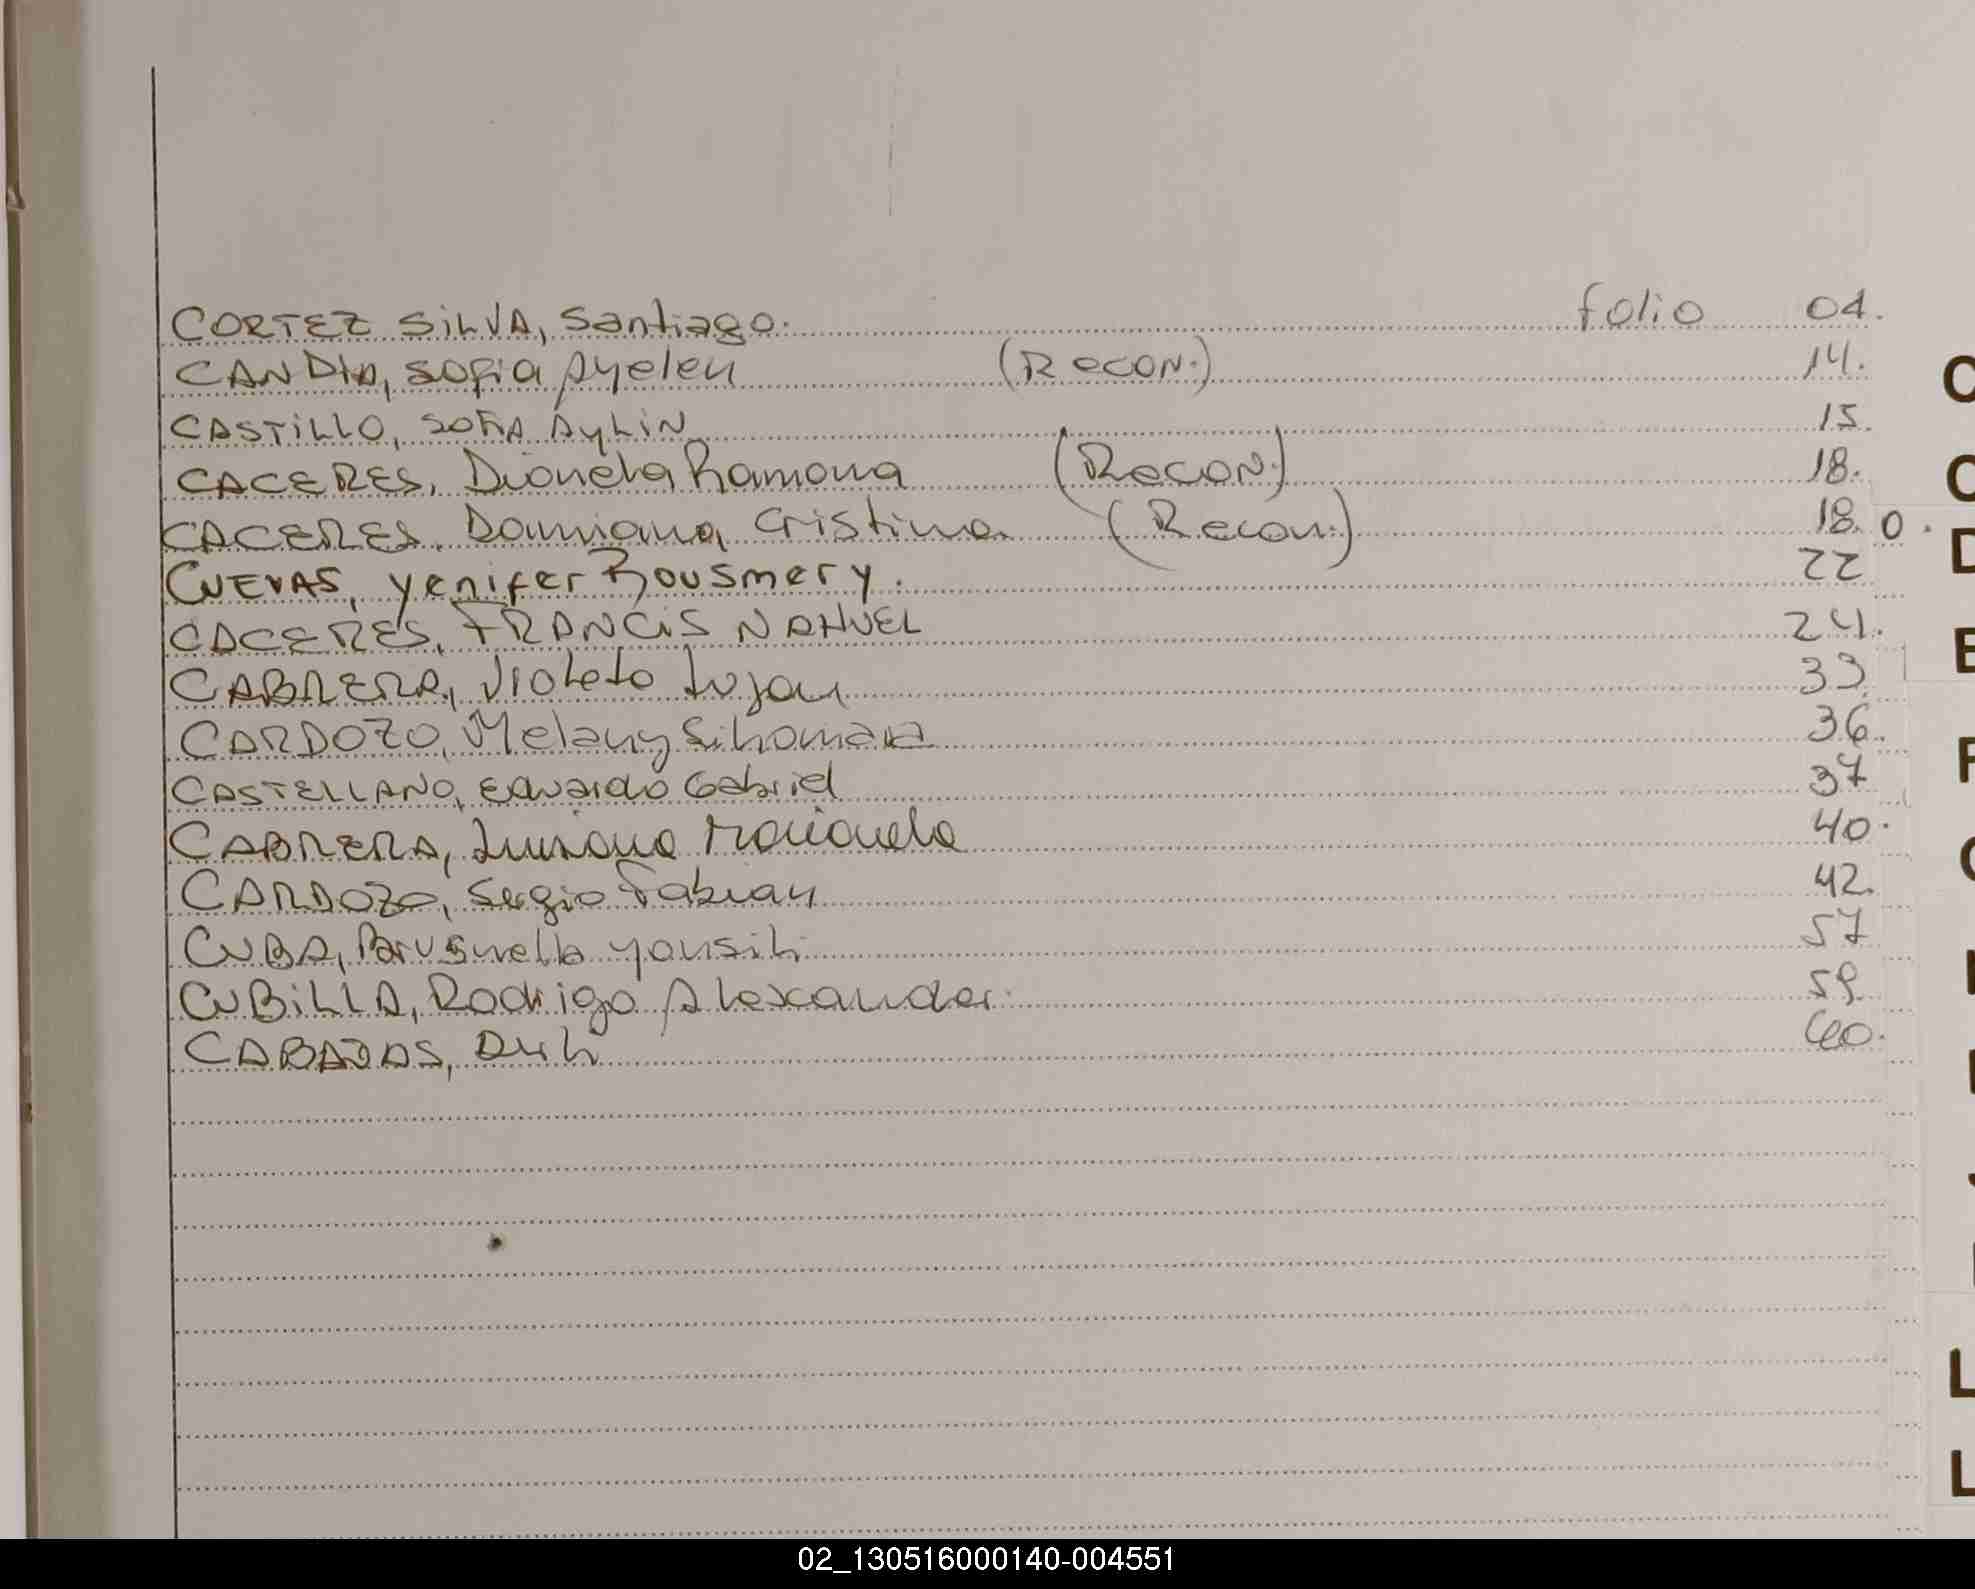 CORTEZ SILVA, Santiago. folio 04.
CANDIA, Sofia Ayelen (RECON.) 14.
CASTILLO, SOFIA AYLIN 15.
CACERES, Dionela Ramona (RECON.) 18.
CACERES, Damiana Cristina (Recon.) 18. 0.
CUEVAS, yenifer Rousmery. 22
CACERES, FRANCIS NAHUEL 24.
CABRERA, Violeta Lujan 33.
CARDOZO, Melany Sihomara 36.
CASTELLANO, Eduardo Gabriel 37
CABRERA, Luisana Marianela 40.
CARDOZO, Sergio Fabian 42.
CUBA, yansili 57
CUBILLA, Rodrigo Alexander. 59.
CABAJAS, 60.
C
C
D
E
F
G
L
L
02_130516000140-004551